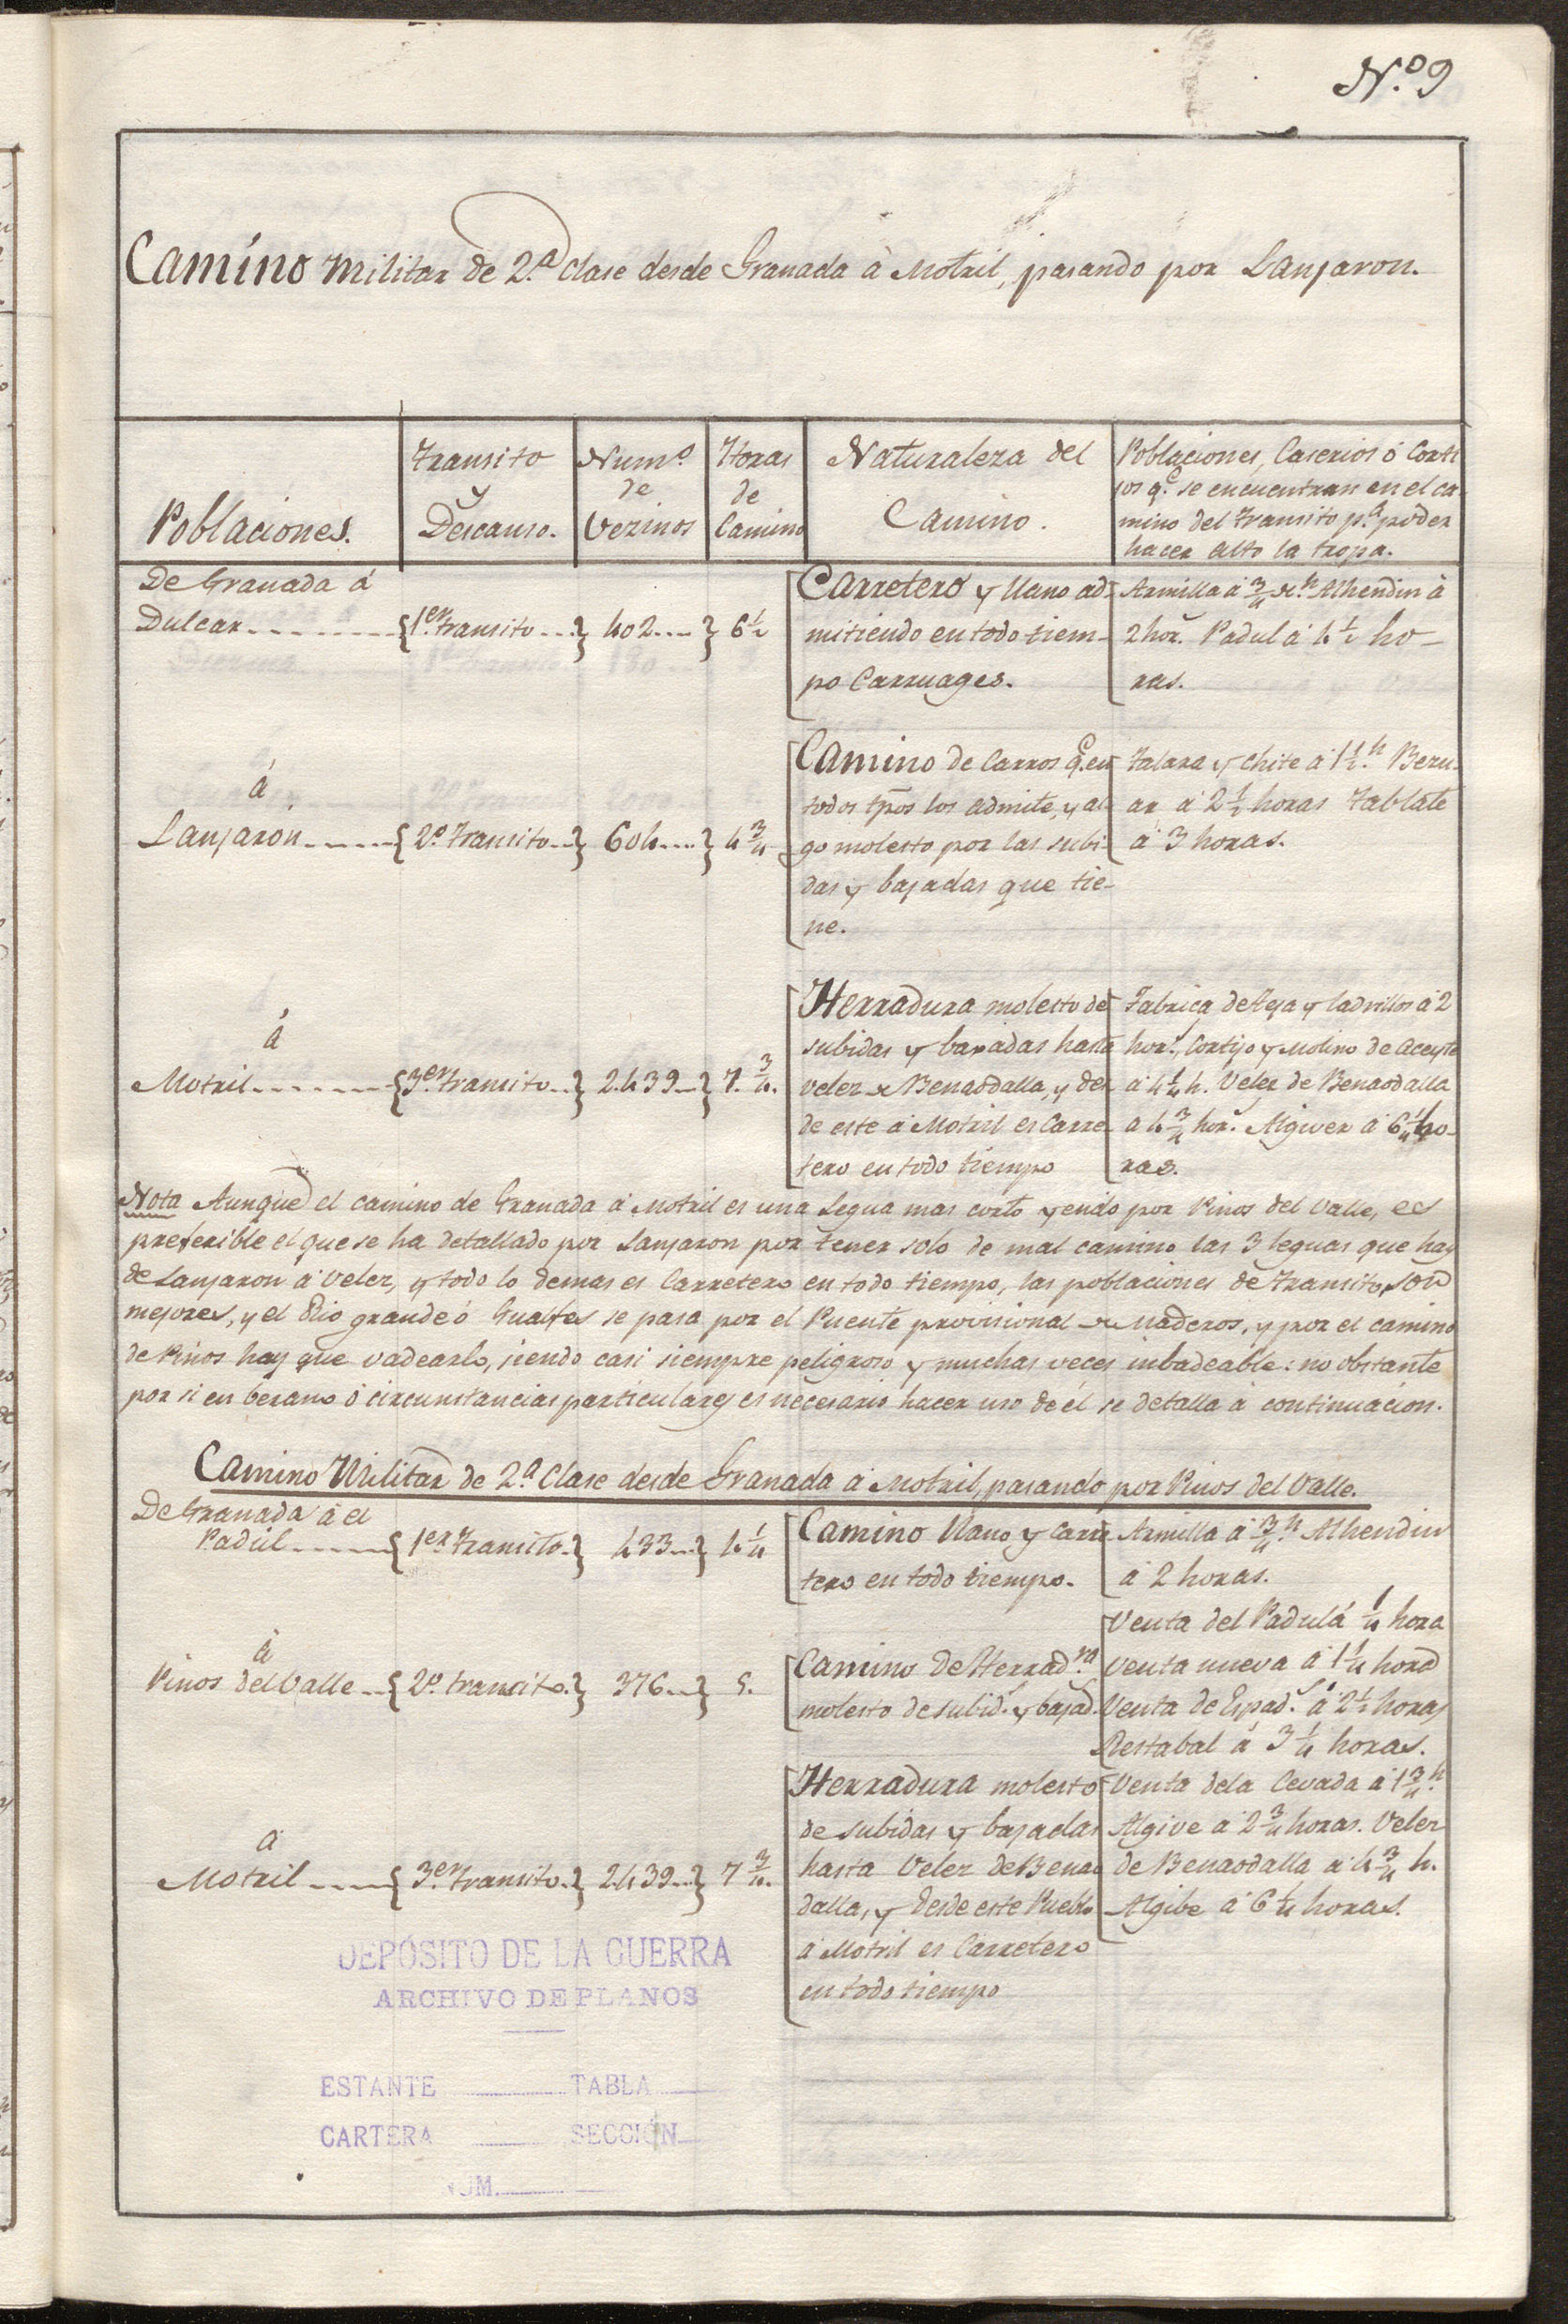 N.º 9
Camino Militar de 2.ª Clase desde Granada à Motril, pasando por Lanjaron.
Poblaciones.
Transito
y
Descanso.
Num.º
de
Vezinos
Horas
de
Camino
Naturaleza del
Camino.
Poblaciones, Caserios ó Corti
jos q.e se encuentran en el ca-
mino del transito p.ª poder
hacer alto la tropa.
De Granada á
Dulcar........{1.er transito...} 402....} 6 1/2
Carretero y llano ad-
mitiendo en todo tiem-
po Carruages.
Armilla á 3/4 de h. Alhendin à
2 hor.s Padul á 4 1/2 ho-
ras.
á
Lanjarón.....{2.º transito...} 604....} 4 3/4
Camino de Carros q.e en
todos tpos los admite, y al-
go molesto por las subi-
das y bajadas que tie-
ne.
Talara y Chite a 1 1/2 h. Bezn-
ar á 2 1/2 horas Tablate
á 3 horas.
á
Motril.......{3.er transito...} 2.439...} 7. 3/4.
Herradura molesto de
subidas y baxadas hasta
velez de Benaodalla, y des
de este á Motril es Carre-
tero en todo tiempo
Fabrica de teja y ladrillos á 2
hor.s, Cortijo y Molino de aceyte
á 4 1/4 h. Velez de Benaodalla
a 4 3/4 hor.s Algiver á 6 1/4 ho-
ras.
Nota Aunque el camino de Granada á Motril es una legua mas corto yendo por Pinos del Valle, es
preferible el que se ha detallado por Lanjaron por tener solo de mal camino las 3 leguas que hay
de Lanjaron á Velez, y todo lo demas es Carretero en todo tiempo, las poblaciones de transito, son
mejores, y el Rio grande ó Gualfeo se pasa por el Puente provisional de Maderos, y por el camino
de Pinos hay que vadearlo, siendo casi siempre peligroso y muchas veces inbadeable: no obstante
por si en berano ó circunstancias particulares es necesario hacer uso de él se detalla á continuacion.
Camino Militar de 2.ª Clase desde Granada á Motril, pasando por Pinos del Valle.
De Granada á el
Padul.....{1.er transito.} 433...} 4 1/4
Camino llano y Carre-
tero en todo tiempo.
Armilla á 3/4 h. Alhendin
á 2 horas.
à
Pinos del Valle..{2.º transito.} 376...} 5.
Camino de Herrad.ra
molesto de subid.s y bajad.s
Venta del Padul á 1/4 hora
Venta nueva á 1 1/4 hora
Venta de Espad.s á 2 1/2 horas
Restabal á 3 1/4 horas.
a
Motril....{3.er transito.} 2.439...} 7 3/4.
Herradura molesto
de subidas y bajadas
hasta Velez de Benao
dalla, y desde este Pueblo
á Motril es Carretero
en todo tiempo
Venta de la Cevada á 1 3/4 h.
Algive á 2 3/4 horas. Velez
de Benaodalla a 4 3/4 h.
Algibe á 6 1/4 horas.
DEPÓSITO DE LA GUERRA
ARCHIVO DE PLANOS
ESTANTE TABLA
CARTERA SECCIÓN
NUM.